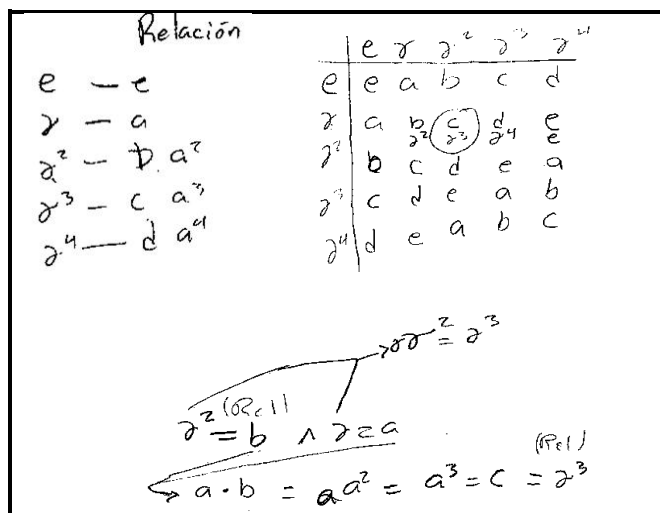 Relación
e — e
γ — a
γ² — b a²
γ³ — c a³
γ⁴ — d a⁴
e γ γ² γ³ γ⁴
e e a b c d
γ a b c d e
γ² γ³ γ⁴ e
γ² b c d e a
γ³ c d e a b
γ⁴ d e a b c
γγ² = γ³
(Rel)
γ² = b ∧ γ = a
(Rel)
a · b = aa² = a³ = c = γ³